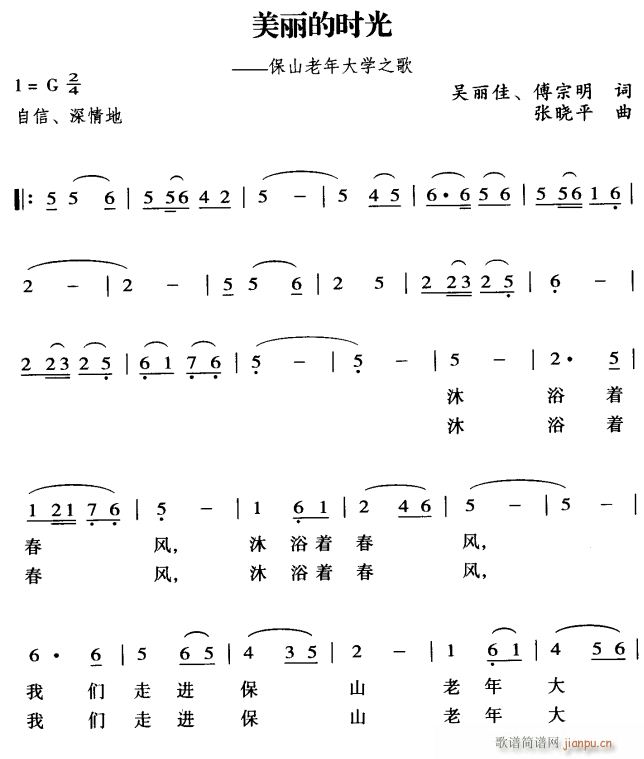 美丽的时光
——保山老年大学之歌
1 = G 2/4
吴丽佳、傅宗明 词
自信、深情地
张晓平 曲
‖: 5 5 6 | 5 56 4 2 | 5 - | 5 4 5 | 6· 6 5 6 | 5 56 1 6 |
2 - | 2 - | 5 5 6 | 2 5 | 2 23 2 5 | 6 - |
2 23 2 5 | 6 1 7 6 | 5 - | 5 - | 5 - | 2· 5 |
沐 浴 着
沐 浴 着
1 21 7 6 | 5 - | 1 6 1 | 2 4 6 | 5 - | 5 - |
春 风, 沐 浴 着 春 风,
春 风, 沐 浴 着 春 风,
6· 6 | 5 6 5 | 4 3 5 | 2 - | 1 6 1 | 4 5 6 |
我 们 走 进 保 山 老 年 大
我 们 走 进 保 山 老 年 大
歌谱简谱网 jianpu.cn